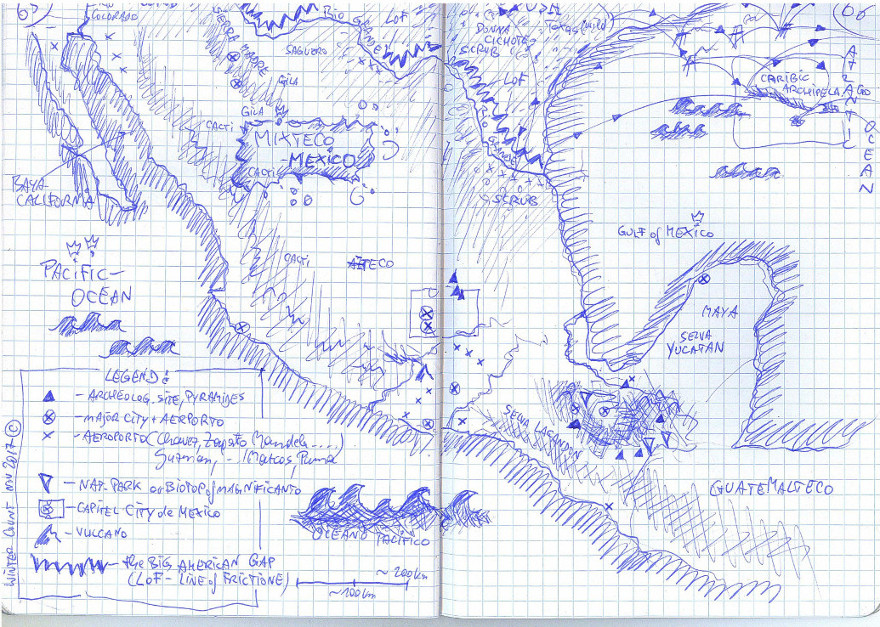 COLORADO
SIERRA MADRE
RIO GRANDE
LOF
SAGUERO
GILA
GILA
CACTI
MIXTECO
-MEXICO
CACTI
BAYA-
CALIFORNIA
PACIFIC-
OCEAN
CACTI
AZTECO
LEGEND:
- ARCHEOLOG. SITE, PYRAMIDES
- MAJOR CITY + AERPORTO
- AEROPORTO (Chavez, Zapato Mandela ....)
Guzman, .. /Marcos Puma
- NAT. PARK or BIOTOP of MAGNIFICANTO
- CAPITEL CITY de MEXICO
- VULCANO
- the BIG AMERICAN GAP
(LOF - LINE of FRICTIONE)
WINTER COUNT NOV 2017 ©
OCEANO PACIFICO
~ 200 km
~100 km
USA
DONNA
CICHOTE
SCRUB
LOF
Rio Grande
SCRUB
CARIBIC
ARCHIPELAGO
ATLANTIC
OCEAN
GULF of MEXICO
MAYA
SELVA
YUCATAN
SELVA LACANDON
GUATEMALTECO